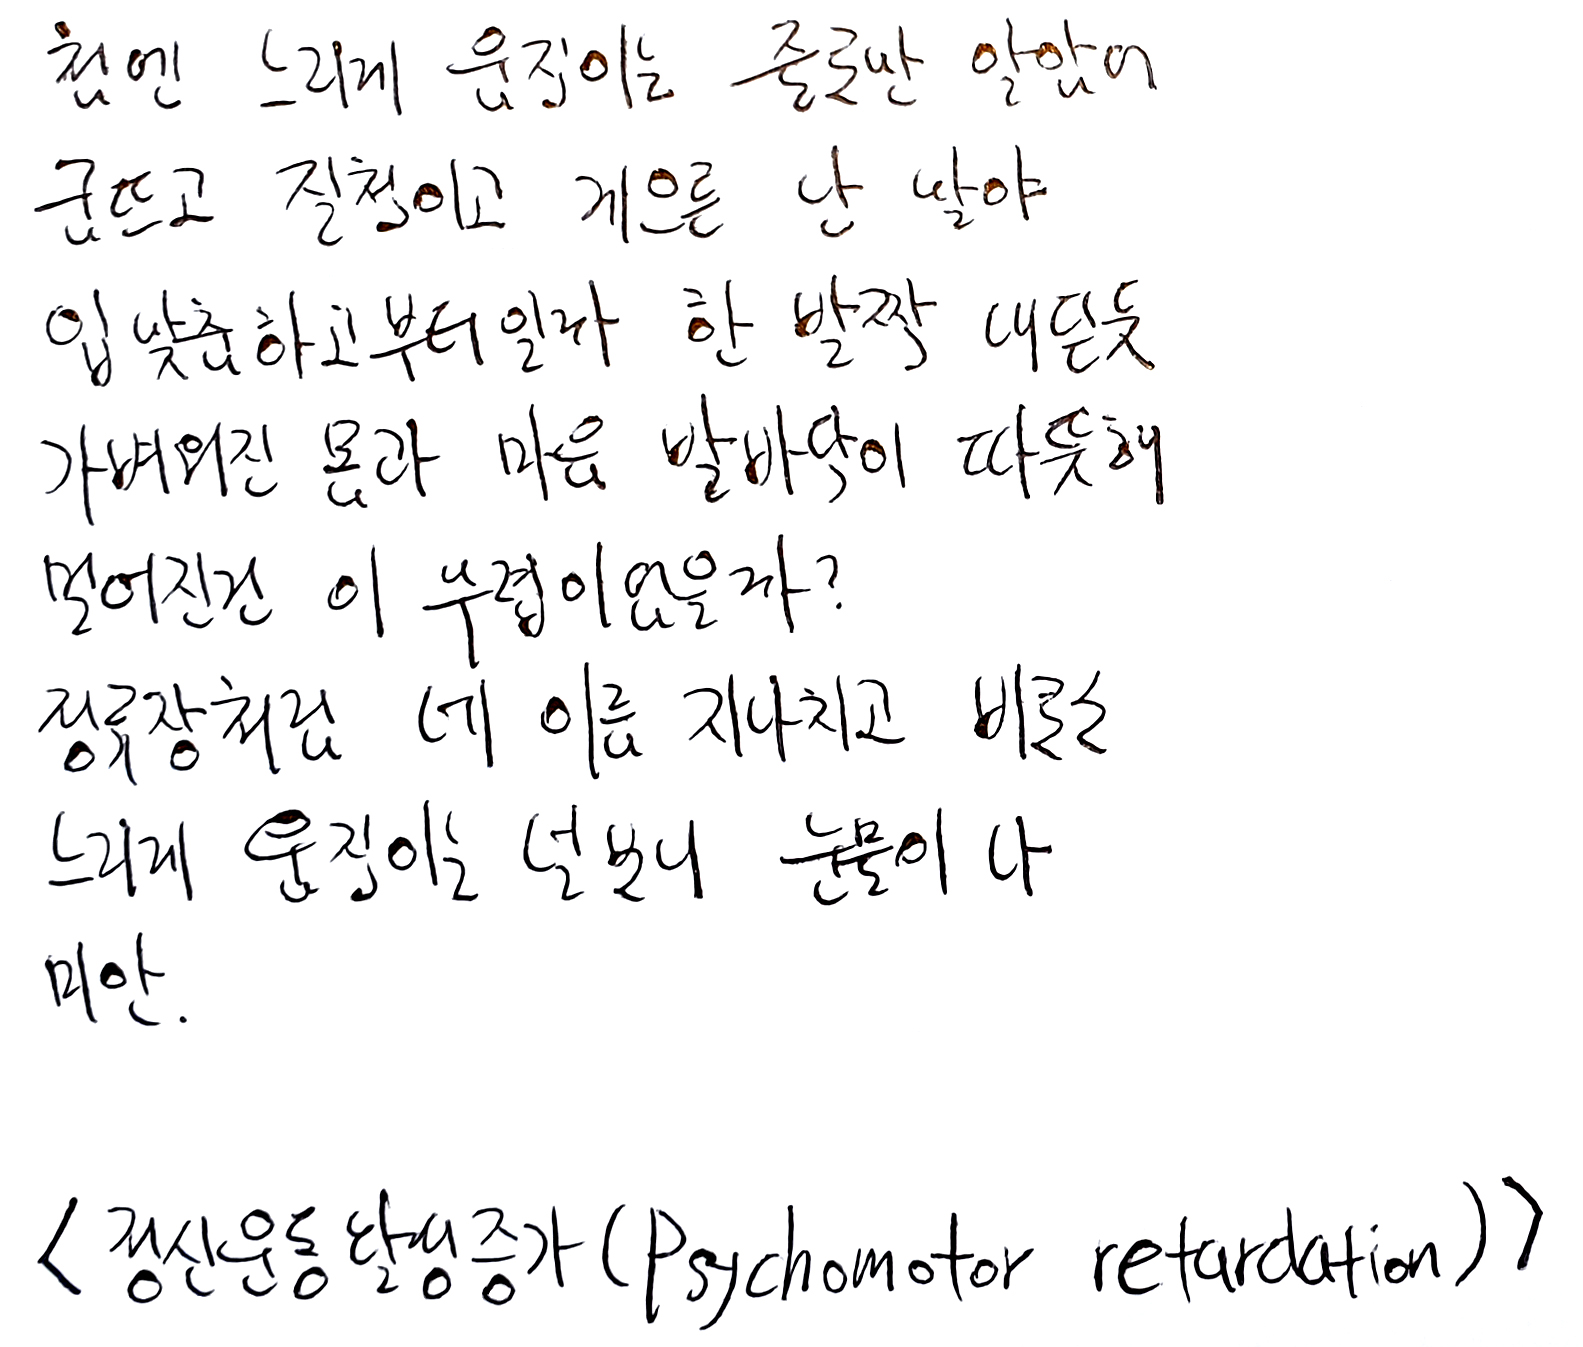 첨엔 느리게 움직이는 줄로만 알았어
굼뜨고 질척이고 게으른 난 말야
입맞춤하고부터일까 한 발짝 내딛듯
가벼워진 몸과 마음 발바닥이 따뜻해
멀어진건 이 무렵이었을까?
정류장처럼 네 이름 지나치고 비로소
느리게 움직이는 널보니 눈물이 나
미안.
<정신운동활성증가(Psychomotor retardation)>